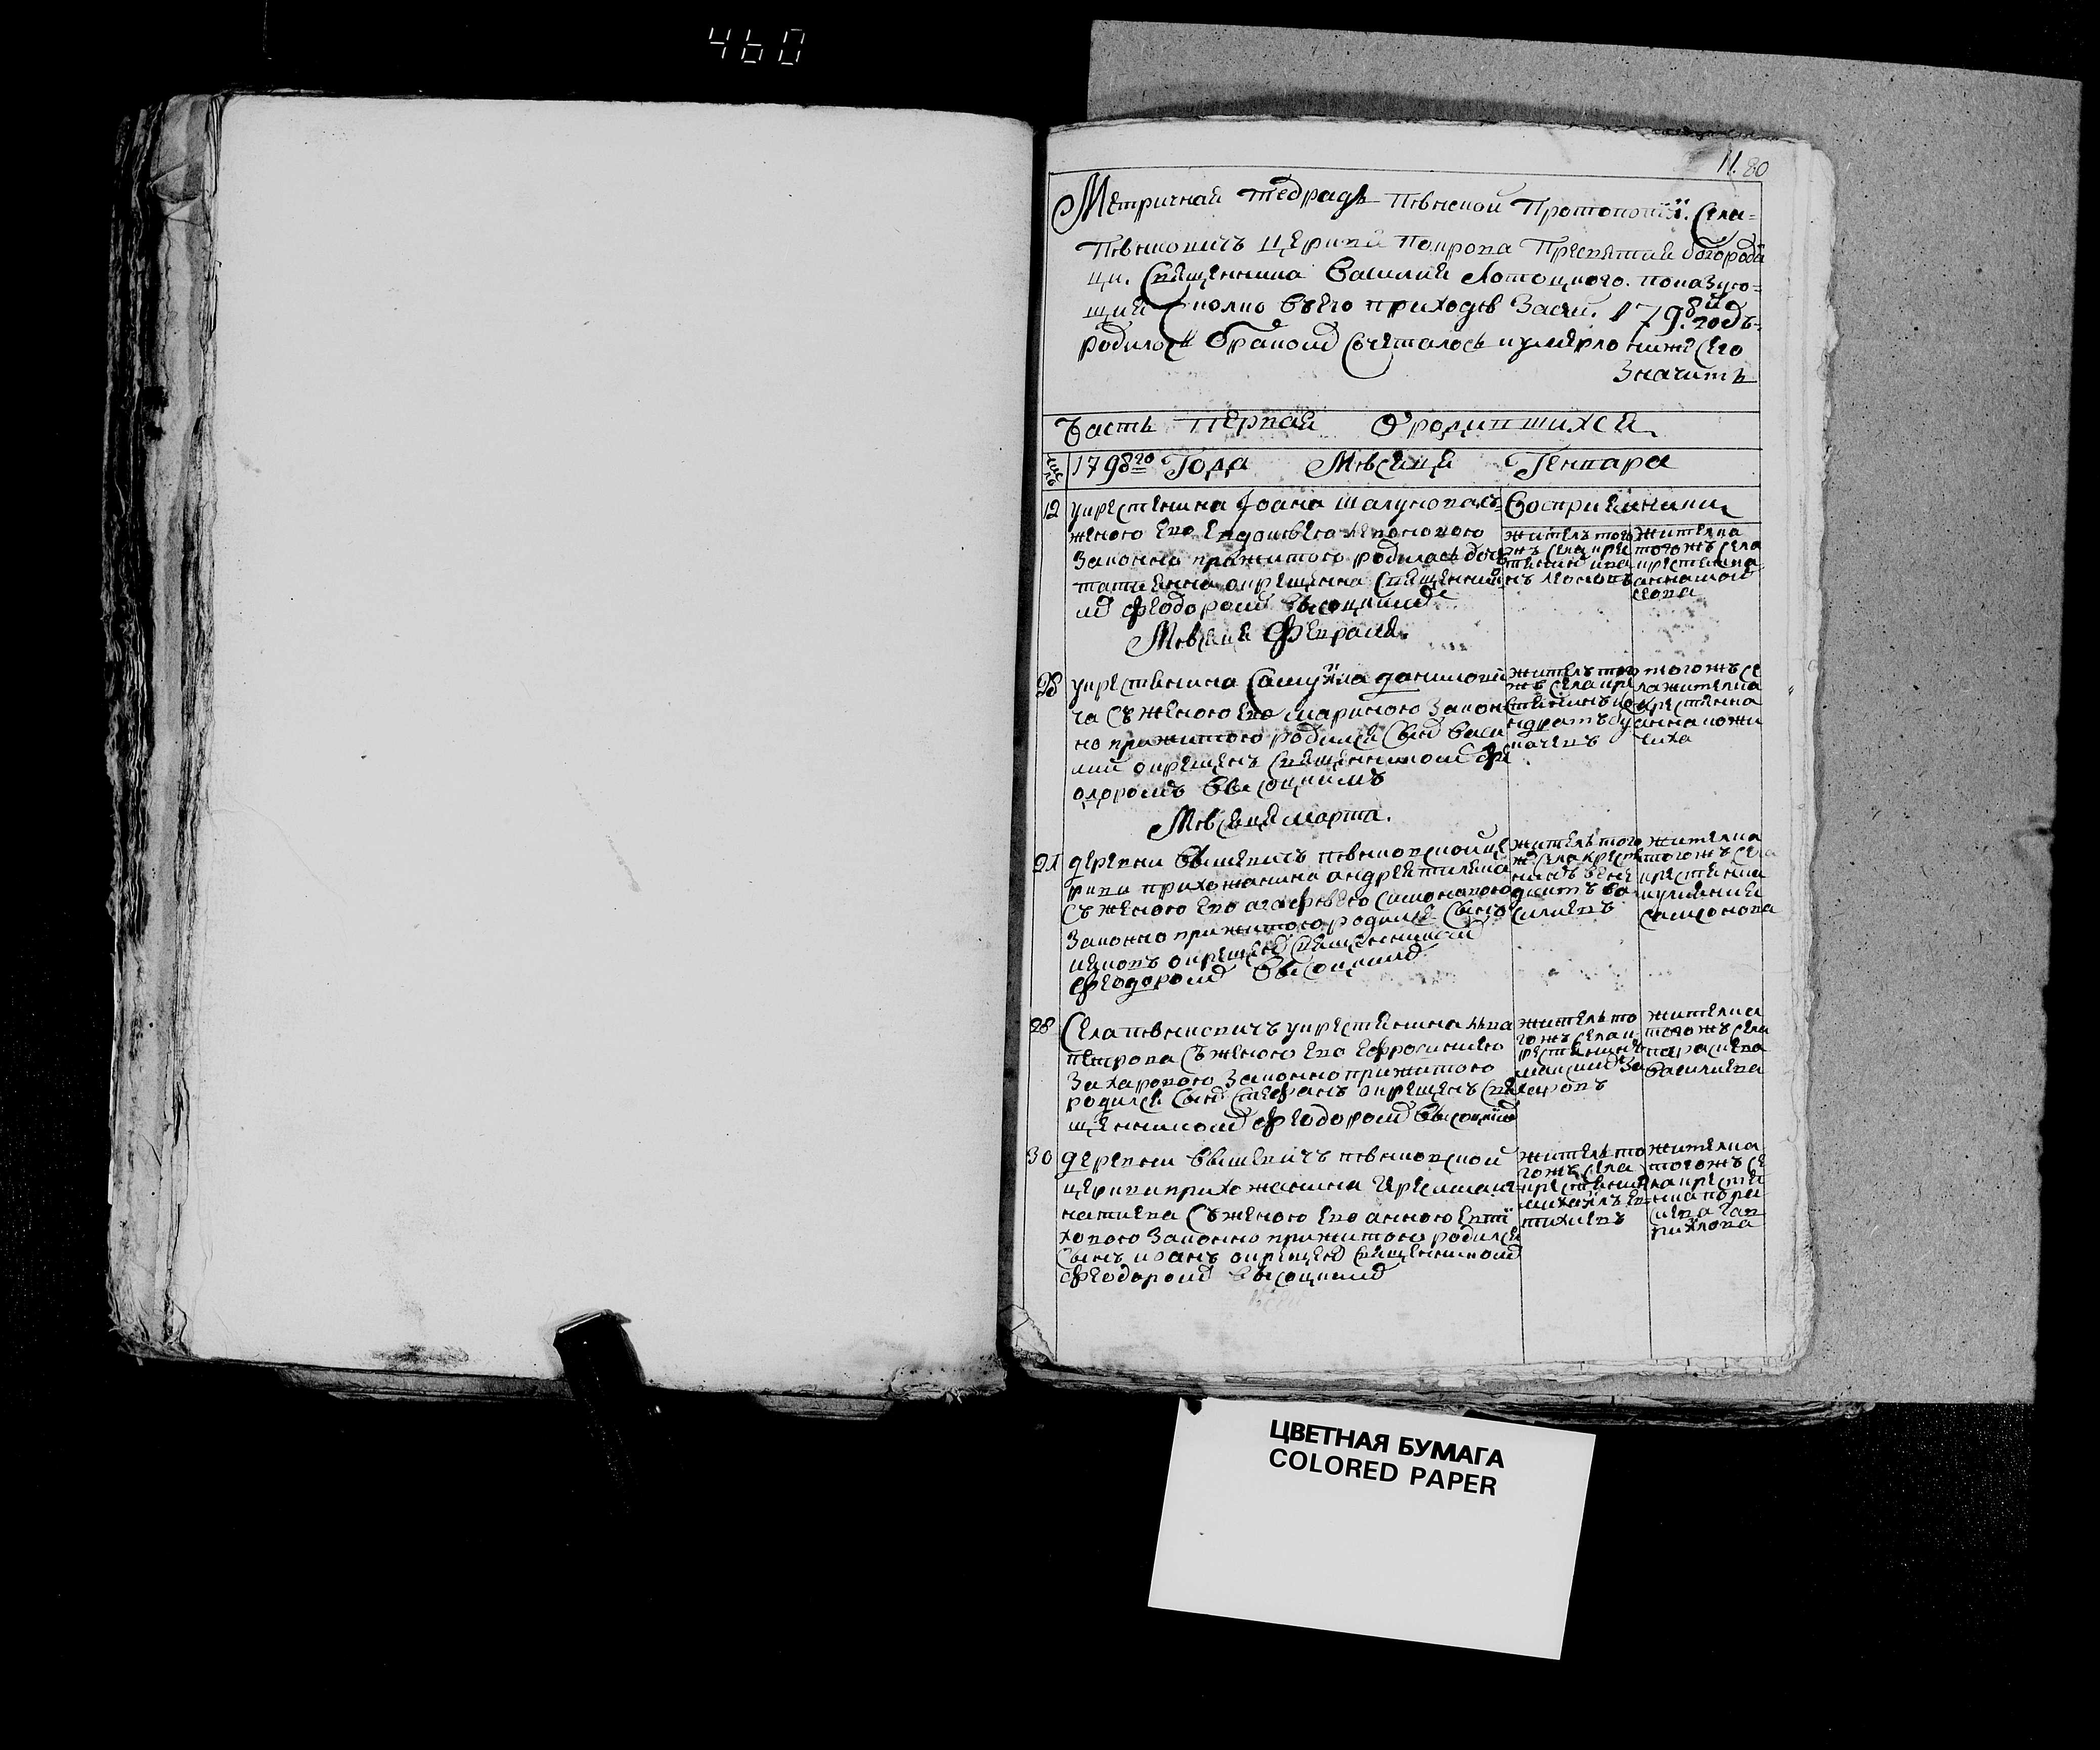 460
11. 80
Метричная тедрадь Пѣвнской Протопопїї. Села-
Пѣвнковичъ церкви Покрова Пресвятия богороди
ци. Священника Василия Лотоцкого. показую-
щия сколко въего приходѣ Засей. 1798й годъ-
родилось бракомъ сочеталось иумерло ниже сего
Значитъ
Часть первая О родившихся
число 1798го Года Мѣсяця Генваря
12 укрестянина Іоана Шалукова съ Восприемники
женою его Евдокиею
Законно прижитою родилась дочь
татиянна окрещенна священнико
мъ феодоромъ Высоцкимъ
житель того
жъ села кре
стянин
жителка
тогожъ села
крестянка
анна
Мѣсяця Февраля.
28 укрестянина Самуйла данилови
ча съ женою его мариною закон
но прижитою родился сынъ васи
лий окрещенъ священникомъ фе
одоромъ Высоцкимъ
житель того
жъ села кре
стянинъ ко
ндратъ
тогожъ се
ла жителка
крестянка
анна
Мѣсяця марта.
21 деревни Вышевичъ пѣвнковской це
ркви прихожанина андрея
съ женою его агафиею симоновою
Законно прижитого родился сынъ
окрещенъ священникомъ
феодоромъ Высоцкимъ
житель того
жъ села крест
янинъ вене
диктъ ва
силиевъ
жителка
тогожъ села
крестянка
иулияния
самсонова
28 Села пѣвнковичъ укрестянина лва
петрова съ женою его Ефросиниею
Захаровою Законно прижитого
родился сынъ стефанъ окрещенъ свя
щенникомъ феодоромъ Высоцкимъ
житель то
гожъ села к
рестянинъ
максимъ За
харовъ
жителка
тогожъ села
параскева
василиева
30 деревни Вышевичъ пѣвнковской
церкви прихожанина Иремии иг
натиева съ женою его анною Евти
ховою Законно прижитого родился
сынъ иоанъ окрещенъ священникомъ
феодоромъ Высоцкимъ
житель то
гожъ села
крестянин
михайлъ Ев
тихиевъ
жителка
тогожъ се
ла крестя
нка пара
скева Гав
рилова
ЦВЕТНАЯ БУМАГА
COLORED PAPER